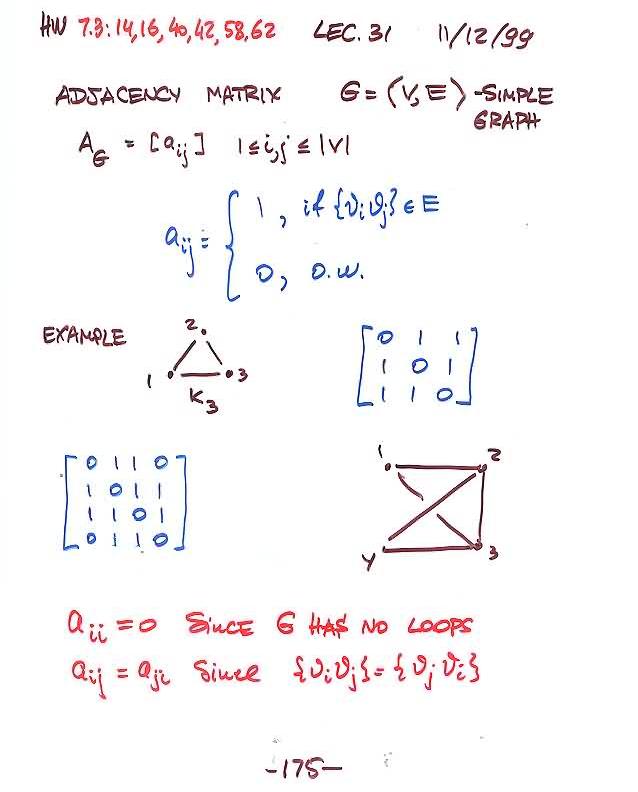 HW 7.3: 14, 16, 40, 42, 58, 62 LEC. 31 11/12/99
ADJACENCY MATRIX G = (V, E) - SIMPLE
GRAPH
A_G = [a_ij] 1 ≤ i, j ≤ |V|
a_ij = { 1, if {v_i v_j} ∈ E
0, o.w.
EXAMPLE
2
1 3
K_3
[ 0 1 1
1 0 1
1 1 0 ]
[ 0 1 1 0
1 0 1 1
1 1 0 1
0 1 1 0 ]
1 2
4 3
a_ii = 0 SINCE G HAS NO LOOPS
a_ij = a_ji SINCE {v_i v_j} = {v_j v_i}
-175-